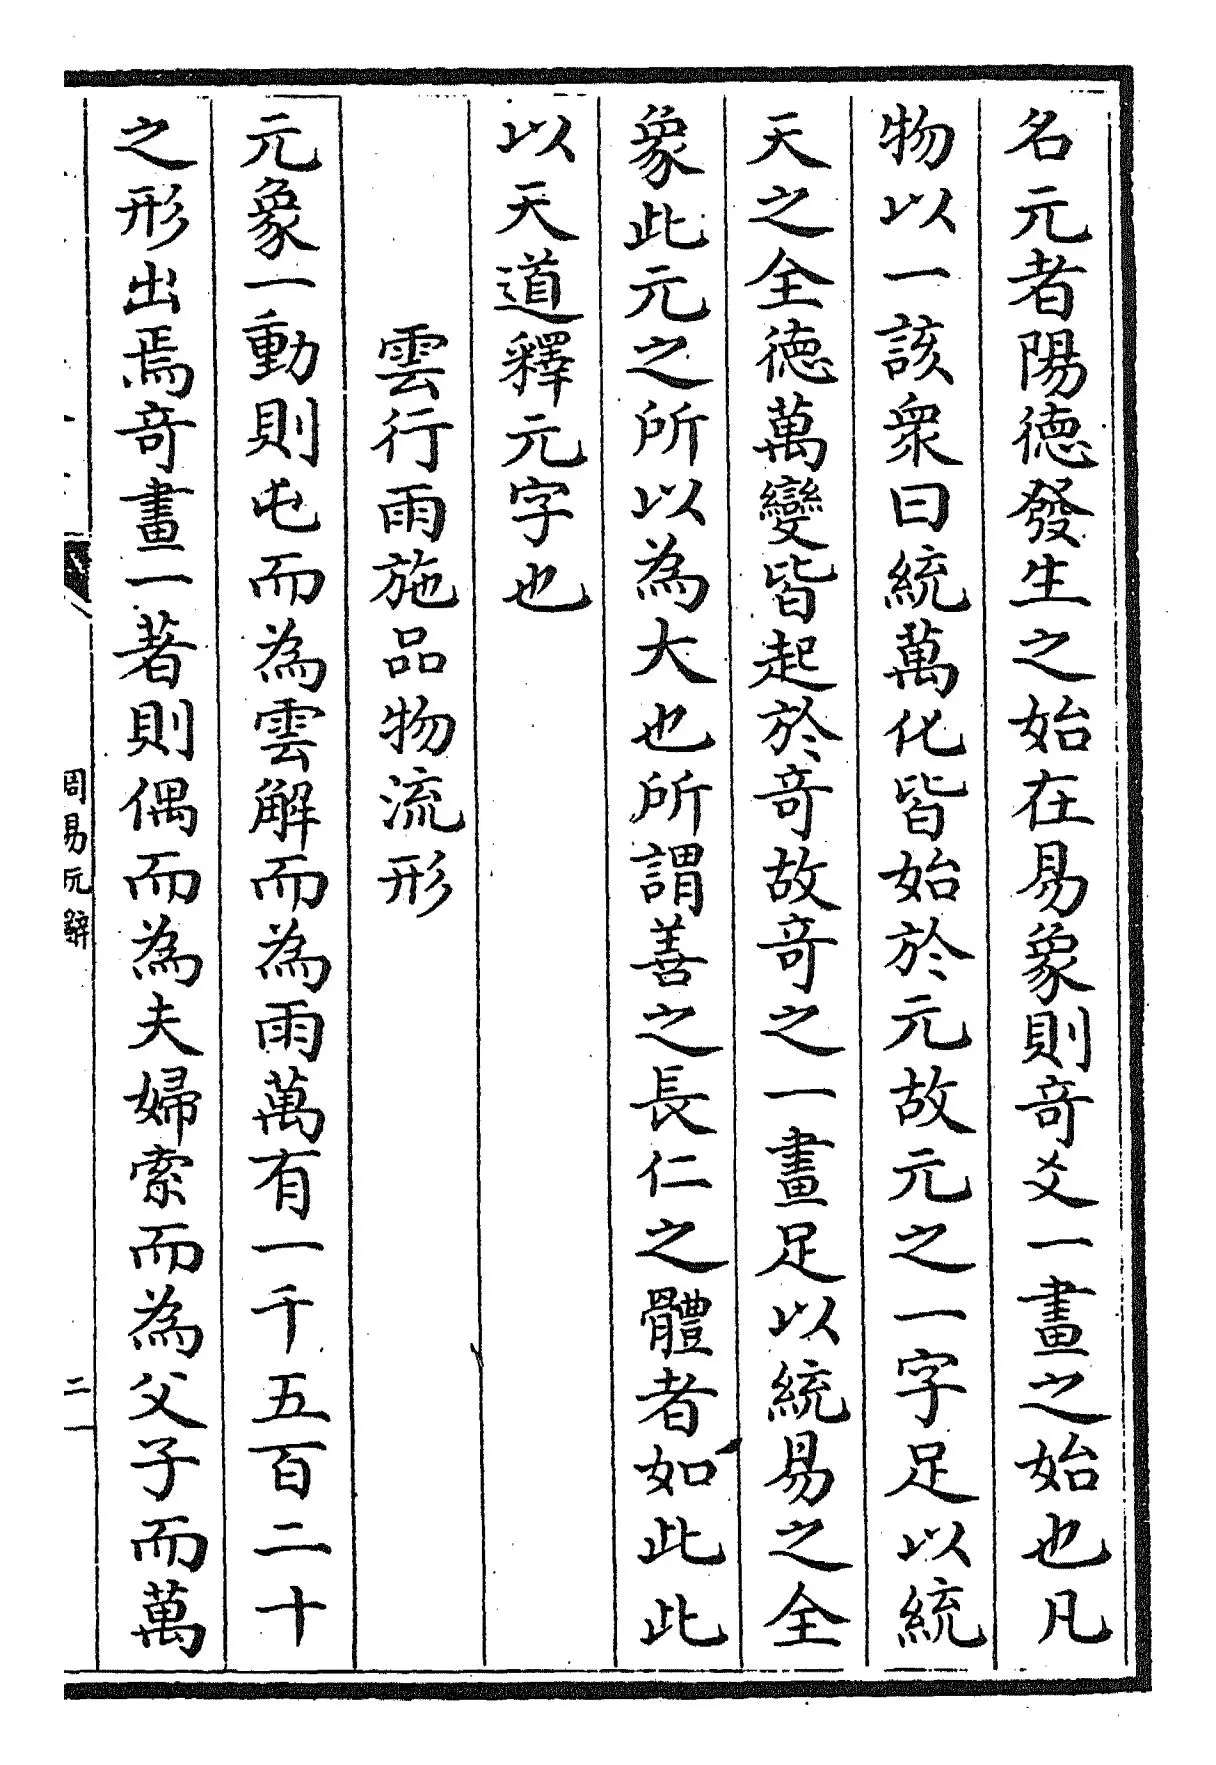 名元者陽德發生之始在易象則竒爻一畫之始也凡
物以一該衆曰統萬化皆始於元故元之一字足以統
天之全德萬變皆起於竒故竒之一畫足以統易之全
象此元之所以為大也所謂善之長仁之體者如此此
以天道釋元字也
雲行雨施品物流形
元象一動則屯而為雲解而為雨萬有一千五百二十
之形出焉竒畫一著則偶而為夫婦索而為父子而萬
周易玩辭
二